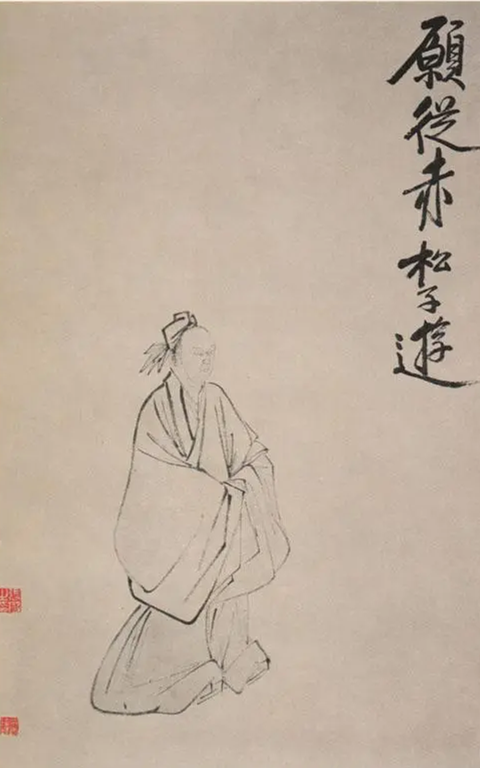 願從赤松子遊